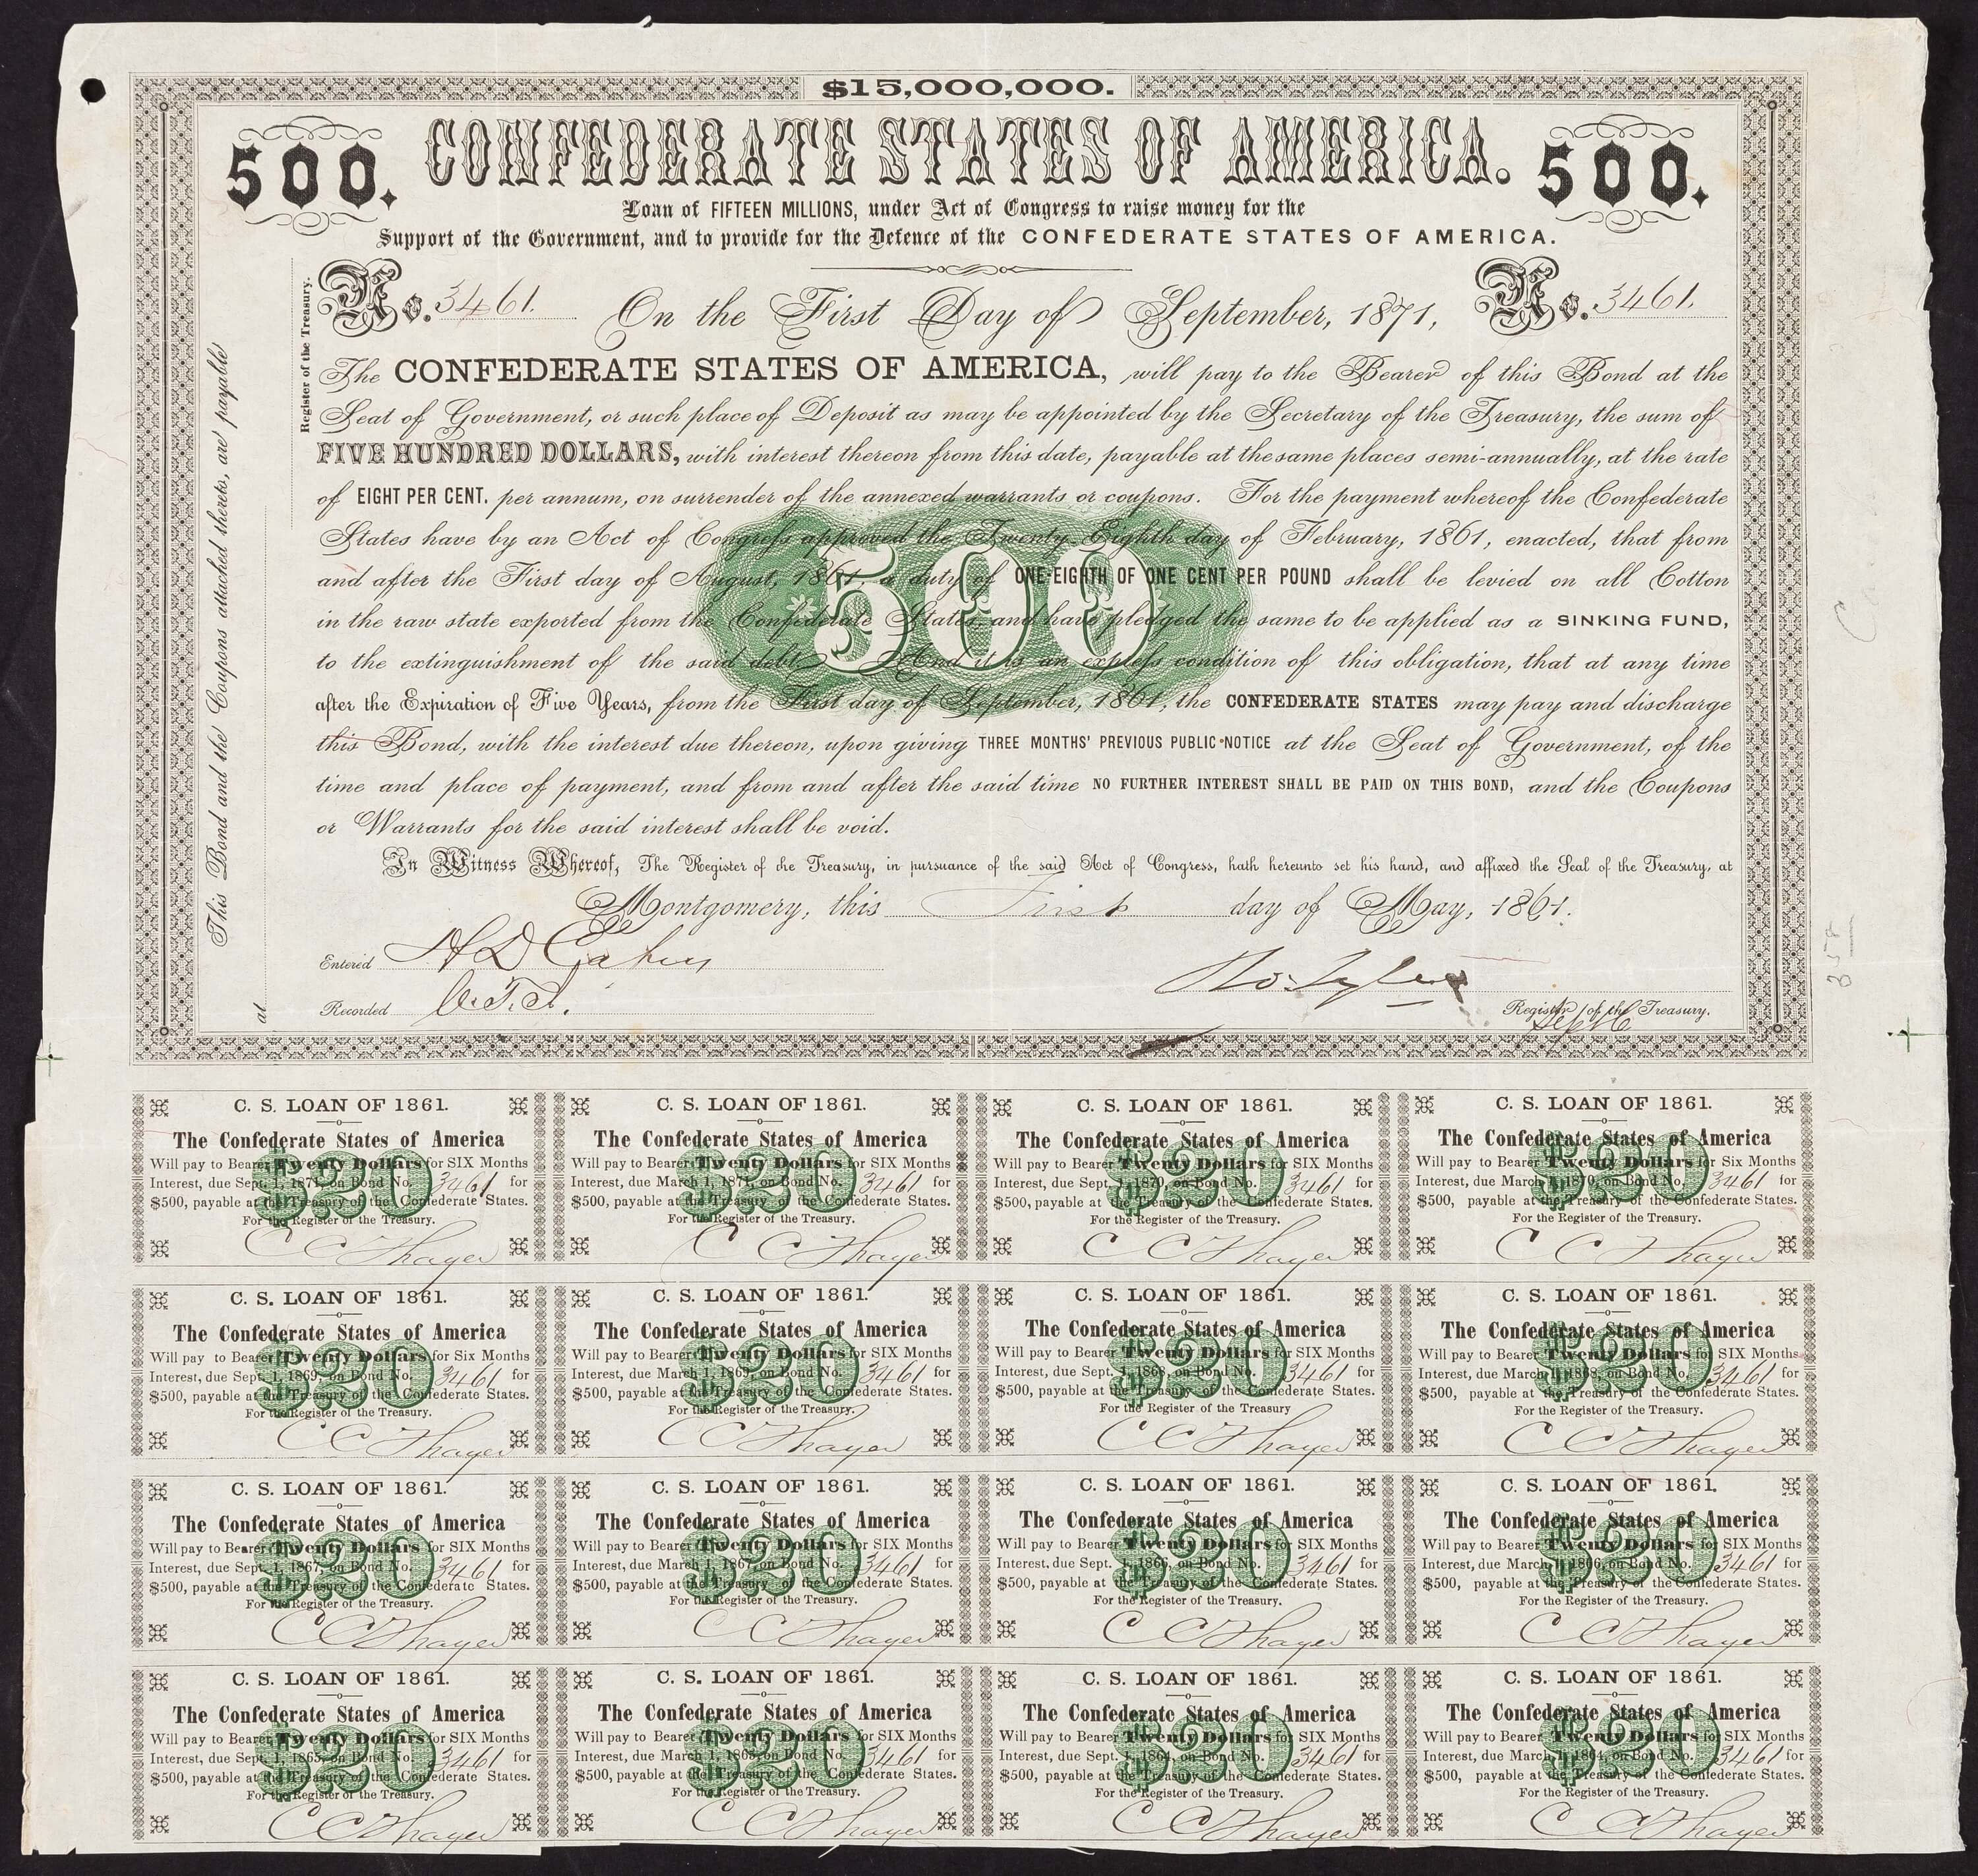 $15,000,000.
500. CONFEDERATE STATES OF AMERICA. 500.
Loan of FIFTEEN MILLIONS, under Act of Congress to raise money for the
Support of the Government, and to provide for the Defence of the CONFEDERATE STATES OF AMERICA.
No. 3461. On the First Day of September, 1871, No. 3461.
The CONFEDERATE STATES OF AMERICA, will pay to the Bearer of this Bond at the
Seat of Government, or such place of Deposit as may be appointed by the Secretary of the Treasury, the sum of
FIVE HUNDRED DOLLARS, with interest thereon from this date, payable at the same places semi-annually, at the rate
of EIGHT PER CENT. per annum, on surrender of the annexed warrants or coupons. For the payment whereof the Confederate
States have by an Act of Congress approved the Twenty-Eighth day of February, 1861, enacted, that from
and after the First day of August, 1861, a duty of ONE-EIGHTH OF ONE CENT PER POUND shall be levied on all Cotton
in the raw state exported from the Confederate States, and have pledged the same to be applied as a SINKING FUND,
to the extinguishment of the said debt. And it is an express condition of this obligation, that at any time
after the Expiration of Five Years, from the First day of September, 1861, the CONFEDERATE STATES may pay and discharge
this Bond, with the interest due thereon, upon giving THREE MONTHS' PREVIOUS PUBLIC NOTICE at the Seat of Government, of the
time and place of payment, and from and after the said time NO FURTHER INTEREST SHALL BE PAID ON THIS BOND, and the Coupons
or Warrants for the said interest shall be void.
500
In Witness Whereof, The Register of the Treasury, in pursuance of the said Act of Congress, hath hereunto set his hand, and affixed the Seal of the Treasury, at
Montgomery, this First day of May, 1861.
Entered
Recorded
Ro. Tyler
Register of the Treasury.
This Bond and the Coupons attached thereto, are payable
at
Register of the Treasury.
358
C. S. LOAN OF 1861.
The Confederate States of America
Will pay to Bearer Twenty Dollars for SIX Months
Interest, due Sept. 1, 1871, on Bond No. 3461 for
$500, payable at the Treasury of the Confederate States.
For the Register of the Treasury.
$20
C C Thayer
C. S. LOAN OF 1861.
The Confederate States of America
Will pay to Bearer Twenty Dollars for SIX Months
Interest, due March 1, 1871, on Bond No. 3461 for
$500, payable at the Treasury of the Confederate States.
For the Register of the Treasury.
$20
C C Thayer
C. S. LOAN OF 1861.
The Confederate States of America
Will pay to Bearer Twenty Dollars for SIX Months
Interest, due Sept. 1, 1870, on Bond No. 3461 for
$500, payable at the Treasury of the Confederate States.
For the Register of the Treasury.
$20
C C Thayer
C. S. LOAN OF 1861.
The Confederate States of America
Will pay to Bearer Twenty Dollars for Six Months
Interest, due March 1, 1870, on Bond No. 3461 for
$500, payable at the Treasury of the Confederate States.
For the Register of the Treasury.
$20
C C Thayer
C. S. LOAN OF 1861.
The Confederate States of America
Will pay to Bearer Twenty Dollars for Six Months
Interest, due Sept. 1, 1869, on Bond No. 3461 for
$500, payable at the Treasury of the Confederate States.
For the Register of the Treasury.
$20
C C Thayer
C. S. LOAN OF 1861.
The Confederate States of America
Will pay to Bearer Twenty Dollars for SIX Months
Interest, due March 1, 1869, on Bond No. 3461 for
$500, payable at the Treasury of the Confederate States.
For the Register of the Treasury.
$20
C C Thayer
C. S. LOAN OF 1861.
The Confederate States of America
Will pay to Bearer Twenty Dollars for SIX Months
Interest, due Sept. 1, 1868, on Bond No. 3461 for
$500, payable at the Treasury of the Confederate States.
For the Register of the Treasury
$20
C C Thayer
C. S. LOAN OF 1861.
The Confederate States of America
Will pay to Bearer Twenty Dollars for SIX Months
Interest, due March 1, 1868, on Bond No. 3461 for
$500, payable at the Treasury of the Confederate States.
For the Register of the Treasury.
$20
C C Thayer
C. S. LOAN OF 1861.
The Confederate States of America
Will pay to Bearer Twenty Dollars for SIX Months
Interest, due Sept. 1, 1867, on Bond No. 3461 for
$500, payable at the Treasury of the Confederate States.
For the Register of the Treasury.
$20
C C Thayer
C. S. LOAN OF 1861.
The Confederate States of America
Will pay to Bearer Twenty Dollars for SIX Months
Interest, due March 1, 1867, on Bond No. 3461 for
$500, payable at the Treasury of the Confederate States.
For the Register of the Treasury.
$20
C C Thayer
C. S. LOAN OF 1861.
The Confederate States of America
Will pay to Bearer Twenty Dollars for SIX Months
Interest, due Sept. 1, 1866, on Bond No. 3461 for
$500, payable at the Treasury of the Confederate States.
For the Register of the Treasury.
$20
C C Thayer
C. S. LOAN OF 1861.
The Confederate States of America
Will pay to Bearer Twenty Dollars for SIX Months
Interest, due March 1, 1866, on Bond No. 3461 for
$500, payable at the Treasury of the Confederate States.
For the Register of the Treasury.
$20
C C Thayer
C. S. LOAN OF 1861.
The Confederate States of America
Will pay to Bearer Twenty Dollars for SIX Months
Interest, due Sept. 1, 1865, on Bond No. 3461 for
$500, payable at the Treasury of the Confederate States.
For the Register of the Treasury.
$20
C C Thayer
C. S. LOAN OF 1861.
The Confederate States of America
Will pay to Bearer Twenty Dollars for SIX Months
Interest, due March 1, 1865, on Bond No. 3461 for
$500, payable at the Treasury of the Confederate States.
For the Register of the Treasury.
$20
C C Thayer
C. S. LOAN OF 1861.
The Confederate States of America
Will pay to Bearer Twenty Dollars for SIX Months
Interest, due Sept. 1, 1864, on Bond No. 3461 for
$500, payable at the Treasury of the Confederate States.
For the Register of the Treasury.
$20
C C Thayer
C. S. LOAN OF 1861.
The Confederate States of America
Will pay to Bearer Twenty Dollars for SIX Months
Interest, due March 1, 1864, on Bond No. 3461 for
$500, payable at the Treasury of the Confederate States.
For the Register of the Treasury.
$20
C C Thayer